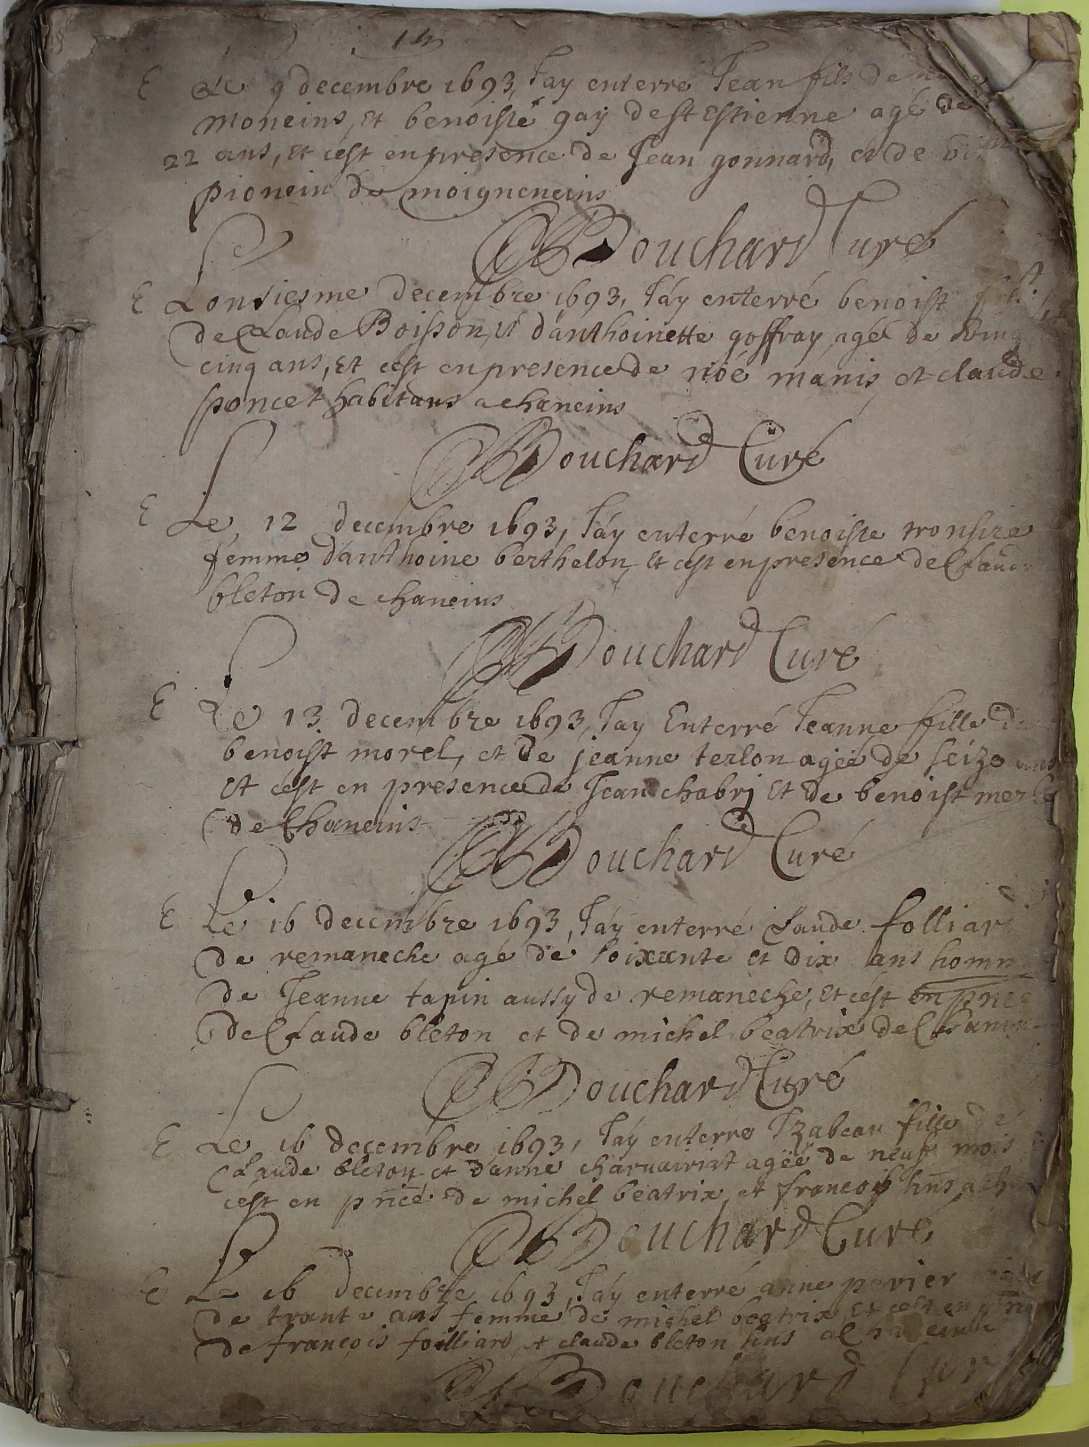 14
E Le 9 decembre 1693, Jay enterré Jean fils de
moneins, et benoiste gay de st Estienne agé de
22 ans, et cest en presence de Jean gonnard, et de
pionein de moigneneins
Bouchard Curé
E Lonziesme decembre 1693, Jáy enterré benoist fils
de Claude Boisson, et danthoinette goffray, agé de
cinq ans, et cest en presence de noé manis et claude
poncet habitans a chaneins
Bouchard Curé
E Le 12 decembre 1693, Jáy enterré benoiste
femme danthoine berthelon, et cest en presence de
bleton de chaneins
Bouchard Curé
E Le 13 decembre 1693, Jay Enterré Jeanne fille
benoist morel, et de jeanne terlon agée de seize ans
et cest en presence de Jean chabri et de benoist
de Chaneins
Bouchard Curé
E Le 16 decembre 1693, Jáy enterré Claude folliard
de remaneche agé de soixxante et dix ans homme
de Jeanne tapin aussy de remaneche, et cest en
de Claude bleton et de michel beatrix de
Bouchard Curé
E Le 16 decembre 1693, Jáy enterré Izabeau fille de
Claude bleton et danne charuairiat agée de neuf mois
cest en pnce de michel beatrix, et francois
Bouchard Curé
E Le 16 decembre 1693, Jáy enterré anne perrier
de trante ans femme de michel beatrix et cest en
de francois foilliard, et claude bleton
Bouchard Curé